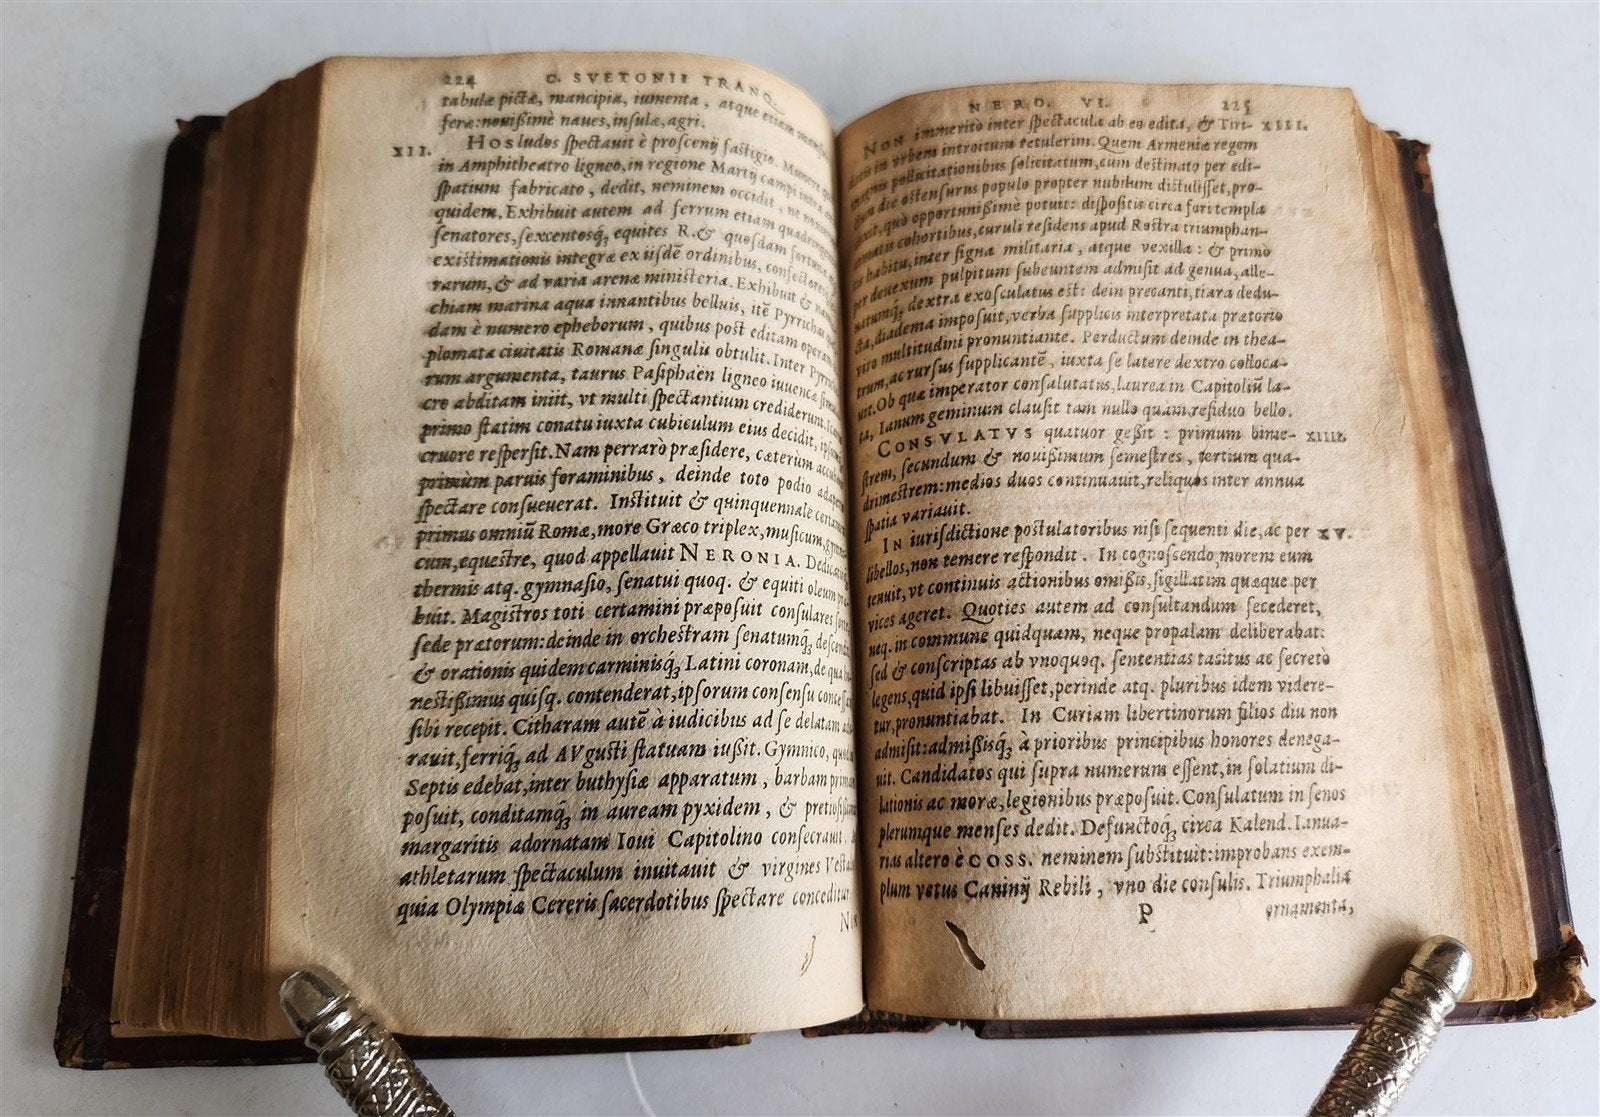 224 C. SVETONII TRANQ.
tabulæ pictæ, mancipia, iumenta, atque etiam
feræ: nouißimè naues, insulæ, agri.
XII. HOS ludos spectauit è proscenij fastigio. Munere
in Amphitheatro ligneo, in regione Martij campi intra
spatium fabricato, dedit, neminem occidit, ne
quidem. Exhibuit autem ad ferrum etiam quadringen
senatores, sexcentosq́; equites R. & quosdam fortunæ
existimationis integræ ex ijsdē ordinibus, confectores
rarum, & ad varia arenæ ministeria. Exhibuit & nau
chiam marina aqua innantibus belluis, itē Pyrrichas
dam è numero epheborum, quibus post editam operam
plomata ciuitatis Romanæ singulis obtulit. Inter Pyrri
rum argumenta, taurus Pasiphaën ligneo iuuencæ simula
cro abditam iniit, vt multi spectantium crediderunt. Icar
primo statim conatu iuxta cubiculum eius decidit, ipsum
cruore respersit. Nam perrarò præsidere, cæterum accub
primùm paruis foraminibus, deinde toto podio adaper
spectare consueuerat. Instituit & quinquennale certamen
primus omniū Romæ, more Græco triplex, musicum, gymni
cum, equestre, quod appellauit NERONIA. Dedicatis
thermis atq. gymnasio, senatui quoq. & equiti oleum præ
buit. Magistros toti certamini præposuit consulares sorte
sede prætorum: deinde in orchestram senatumq́; descendit
& orationis quidem carminisq́; Latini coronam, de qua ho
nestißimus quisq. contenderat, ipsorum consensu concessam
sibi recepit. Citharam autē à iudicibus ad se delatam ado
rauit, ferriq́; ad AVgusti statuam iußit. Gymnico, quod
Septis edebat, inter buthysiæ apparatum, barbam primam
posuit, conditamq́; in auream pyxidem, & pretiosißimis
margaritis adornatam Ioui Capitolino consecrauit.
athletarum spectaculum inuitauit & virgines Vesta
quia Olympiæ Cereris sacerdotibus spectare conceditur.
NERO. VI. 225
NON immeritò inter spectacula ab eo edita, & Tiri- XIII.
datis in vrbem introitum retulerim. Quem Armeniæ regem
magnis pollicitationibus solicitatum, cum destinato per edi-
ctum die ostensurus populo propter nubilum distulisset, pro-
duxit, quò opportunißimè potuit: dispositis circa fori templa
armatis cohortibus, curuli residens apud Rostra triumphan-
tis habitu, inter signa militaria, atque vexilla: & primò
per deuexum pulpitum subeuntem admisit ad genua, alle-
uatumq́; dextra exosculatus est: dein precanti, tiara dedu-
cta, diadema imposuit, verba supplicis interpretata prætorio
viro multitudini pronuntiante. Perductum deinde in thea-
trum, ac rursus supplicantē, iuxta se latere dextro colloca-
uit. Ob quæ imperator consalutatus, laurea in Capitoliū la-
ta, Ianum geminum clausit tam nullo quàm residuo bello.
CONSVLATVS quatuor geßit: primum bime- XIIII.
strem, secundum & nouißimum semestres, tertium qua-
drimestrem: medios duos continuauit, reliquos inter annua
spatia variauit.
IN iurisdictione postulatoribus nisi sequenti die, ac per XV.
libellos, non temere respondit. In cognoscendo, morem eum
tenuit, vt continuis actionibus omißis, sigillatim quæque per
vices ageret. Quoties autem ad consultandum secederet,
neq. in commune quidquam, neque propalam deliberabat:
sed & conscriptas ab vnoquoq. sententias tacitus ac secretò
legens, quid ipsi libuisset, perinde atq. pluribus idem videre-
tur, pronuntiabat. In Curiam libertinorum filios diu non
admisit: admißisq́; à prioribus principibus honores denega-
uit. Candidatos qui supra numerum essent, in solatium di-
lationis ac moræ, legionibus præposuit. Consulatum in senos
plerumque menses dedit. Defunctoq́; circa Kalend. Ianua-
rias altero è COSS. neminem substituit: improbans exem-
plum vetus Caninij Rebili, vno die consulis. Triumphalia
P ornamenta,